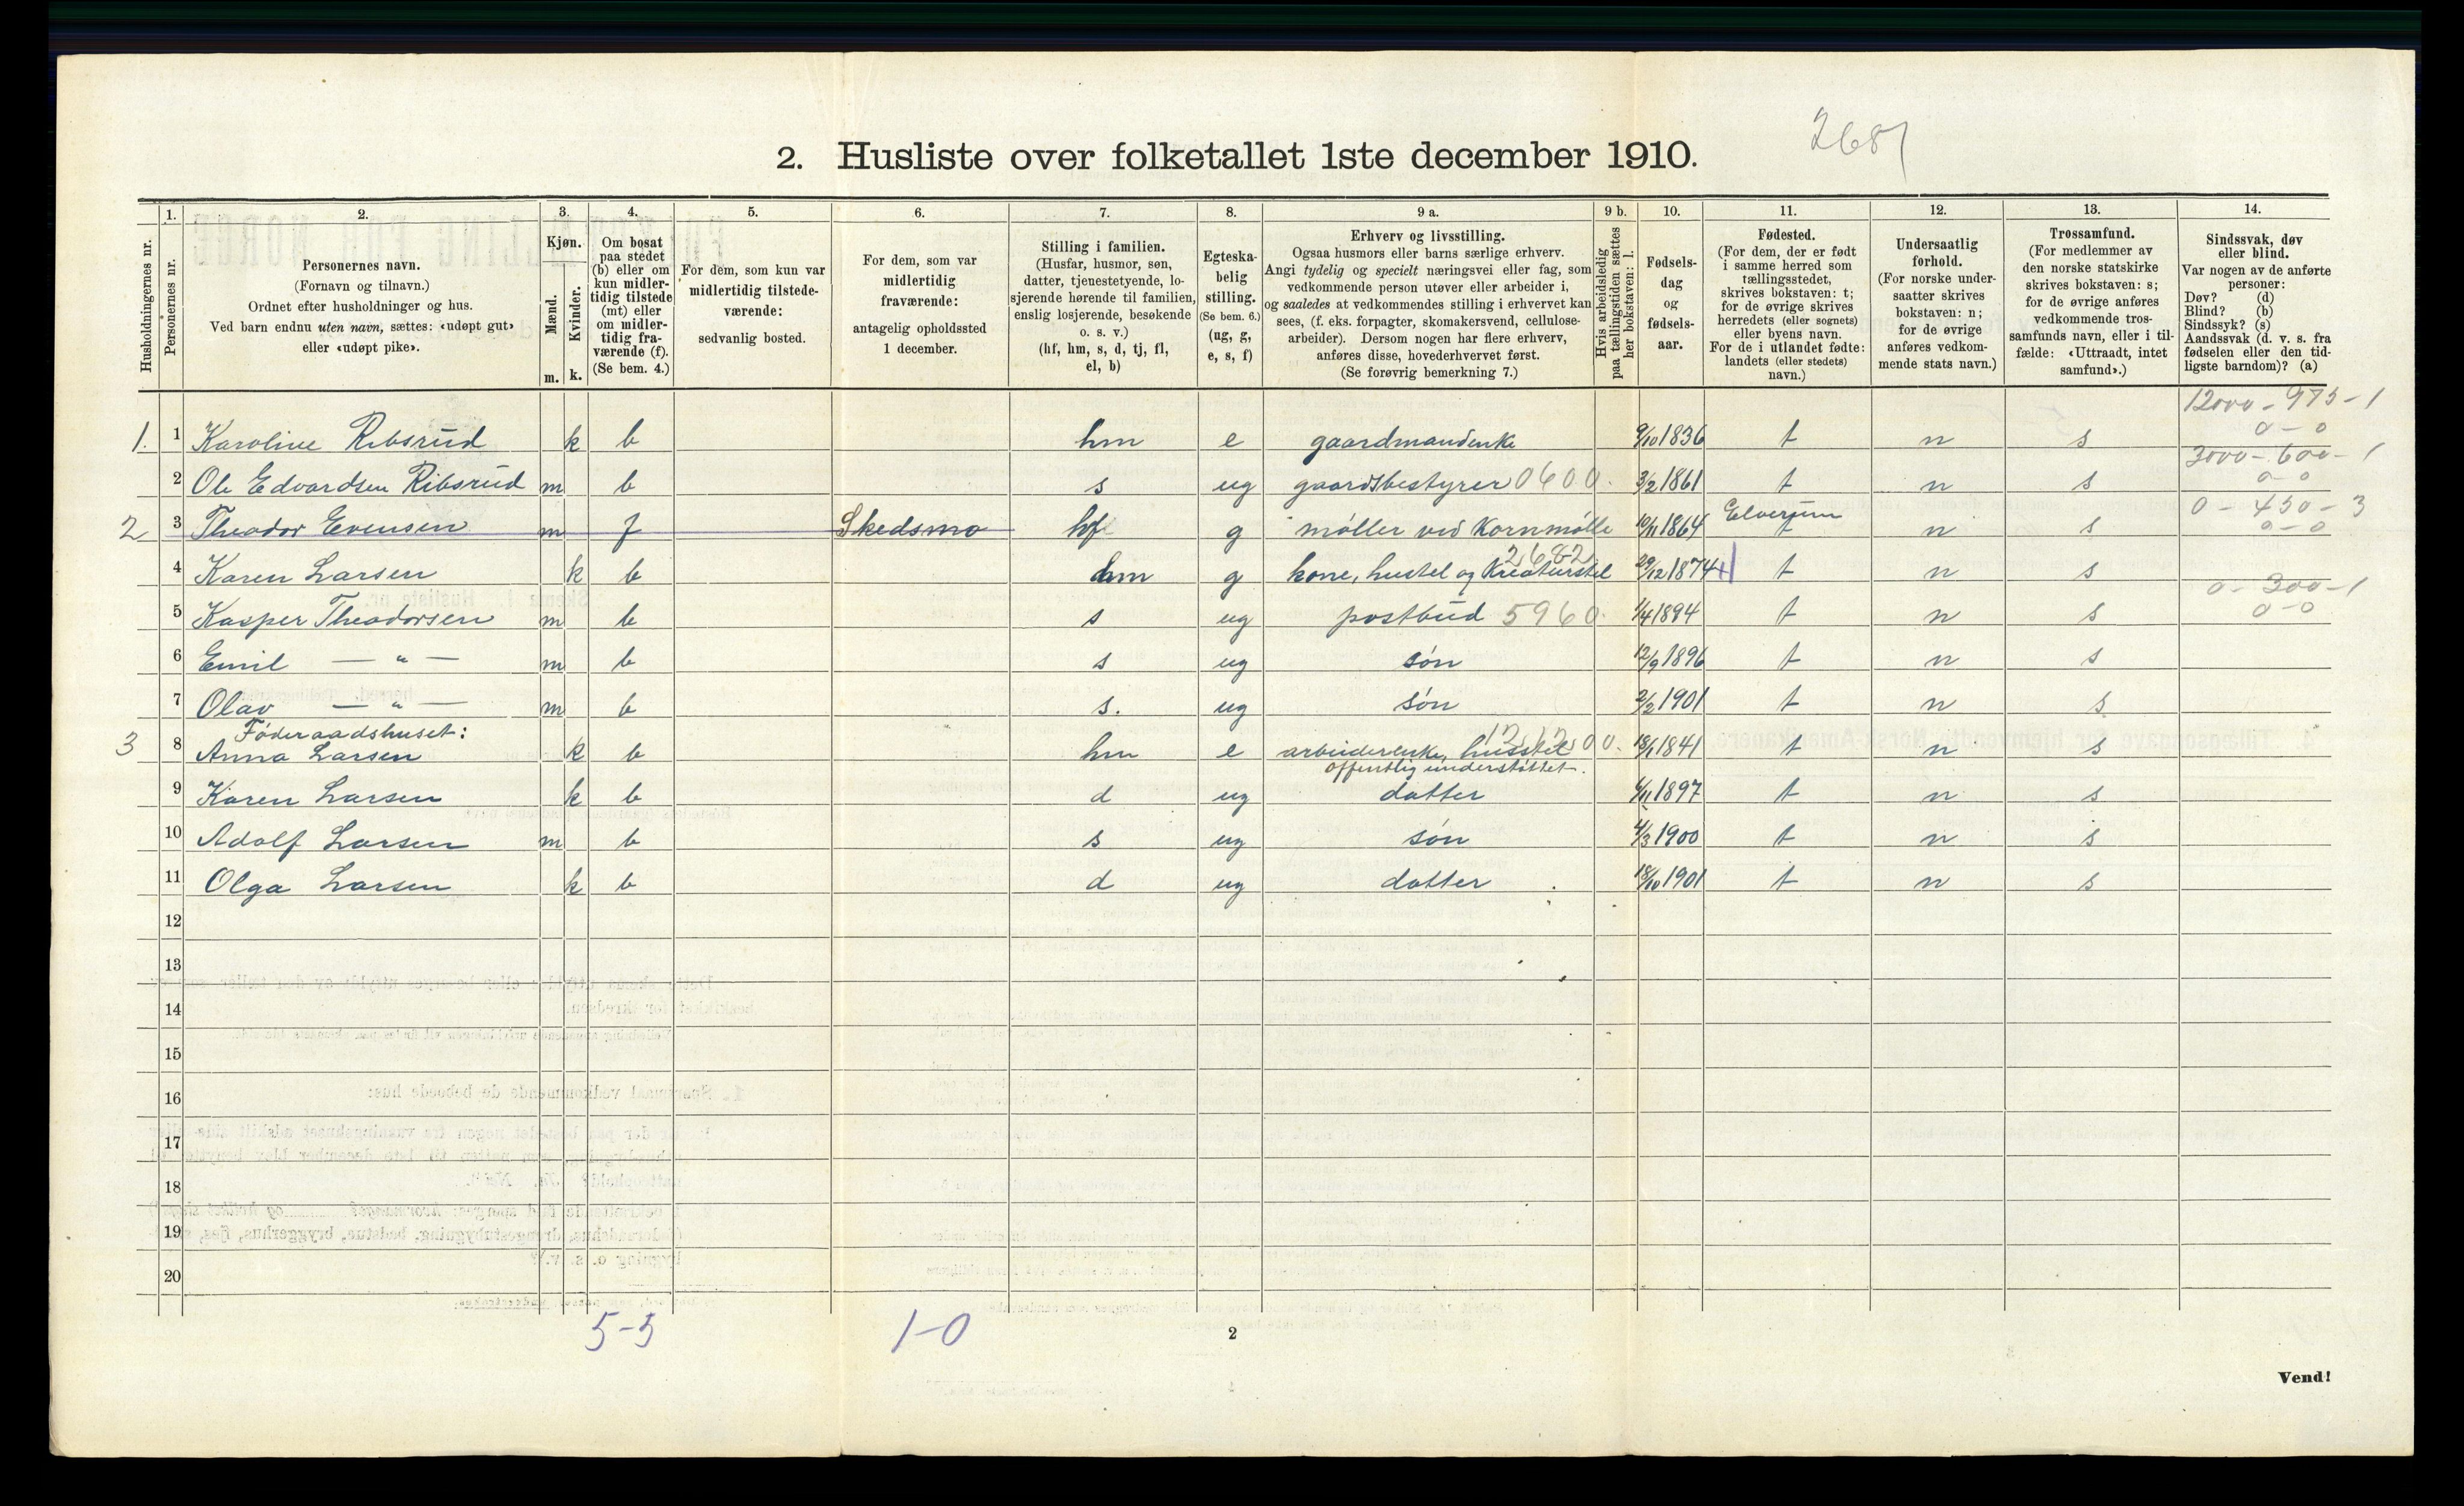 2681
2. Husliste over folketallet 1ste december 1910.
Husholdningernes nr.
1. Personernes nr.
2. Personernes navn. (Fornavn og tilnavn.) Ordnet efter husholdninger og hus. Ved barn endnu uten navn, sættes: «udøpt gut» eller «udøpt pike».
3. Kjøn. Mænd. m. Kvinder. k.
4. Om bosat paa stedet (b) eller om kun midlertidig tilstede (mt) eller om midlertidig fraværende (f). (Se bem. 4.)
5. For dem, som kun var midlertidig tilstedeværende: sedvanlig bosted.
6. For dem, som var midlertidig fraværende: antagelig opholdssted 1 december.
7. Stilling i familien. (Husfar, husmor, søn, datter, tjenestetyende, losjerende hørende til familien, enslig losjerende, besøkende o. s. v.) (hf, hm, s, d, tj, fl, el, b)
8. Egteskabelig stilling. (Se bem. 6.) (ug, g, e, s, f)
9 a. Erhverv og livsstilling. Ogsaa husmors eller barns særlige erhverv. Angi tydelig og specielt næringsvei eller fag, som vedkommende person utøver eller arbeider i, og saaledes at vedkommendes stilling i erhvervet kan sees, (f. eks. forpagter, skomakersvend, cellulosearbeider). Dersom nogen har flere erhverv, anføres disse, hovederhvervet først. (Se forøvrig bemerkning 7.)
9 b. Hvis arbeidsledig paa tællingstiden sættes her bokstaven: l.
10. Fødselsdag og fødselsaar.
11. Fødested. (For dem, der er født i samme herred som tællingsstedet, skrives bokstaven: t; for de øvrige skrives herredets (eller sognets) eller byens navn. For de i utlandet fødte: landets (eller stedets) navn.)
12. Undersaatlig forhold. (For norske undersaatter skrives bokstaven: n; for de øvrige anføres vedkommende stats navn.)
13. Trossamfund. (For medlemmer av den norske statskirke skrives bokstaven: s; for de øvrige anføres vedkommende trossamfunds navn, eller i tilfælde: «Uttraadt, intet samfund».)
14. Sindssvak, døv eller blind. Var nogen av de anførte personer: Døv? (d) Blind? (b) Sindssyk? (s) Aandssvak (d. v. s. fra fødselen eller den tidligste barndom)? (a)
12000 - 975 - 1
1. 1 Karoline Ribsrud k b hm e gaardmandenke 9/10 1836 t n s 0 - 0
3000 - 600 - 1
2 Ole Edvardsen Ribsrud m b s ug gaardsbestyrer 0600. 3/2 1861 t n s 0 - 0
Elverum 0 - 450 - 3
2 3 Theodor Evensen m f Skedsmo hf g møller ved Kornmølle 10/11 1864 t n s 0 - 0
2682
4 Karen Larsen k b hm g kone, hustel og Kreaturstel 29/12 1874 t n s
0 - 300 - 1
5 Kasper Theodorsen m b s ug postbud 5960. 1/4 1894 t n s 0 - 0
6 Emil — " — m b s ug søn 12/9 1896 t n s
7 Olav — " — m b s. ug søn 2/2 1901 t n s
Føderaadshuset:
3 8 Anna Larsen k b hm e arbeiderenke, husstel 18/1 1841 t n s
offentlig understøttet.
9 Karen Larsen k b d ug datter 6/11 1897 t n s
10 Adolf Larsen m b s ug søn 4/3 1900 t n s
11 Olga Larsen k b d ug datter 18/10 1901 t n s
12
13
14
15
16
17
18
19
20
5-5 1-0
2
Vend!